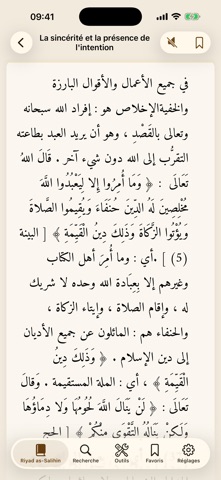 09:41
La sincérité et la présence de
l'intention
في جميع الأعمال والأقوال البارزة
والخفيةالإخلاص هو : إفراد الله سبحانه
وتعالى بالقَصْدِ ، وهو أن يريد العبد بطاعته
التقرُّب إلى الله دون شيء آخر . قَالَ اللهُ
تَعَالَى : ﴿ وَمَا أُمِرُوا إِلا لِيَعْبُدُوا اللَّهَ
مُخْلِصِينَ لَهُ الدِّينَ حُنَفَاءَ وَيُقِيمُوا الصَّلاةَ
وَيُؤْتُوا الزَّكَاةَ وَذَلِكَ دِينُ الْقَيِّمَةِ ﴾ [ البينة
(5) ] .أي : وما أُمِرَ أهل الكتاب
وغيرهم إلا بِعِبَادة الله وحده لا شريك
له ، وإقام الصلاة ، وإيتاء الزكاة ،
والحنفاء هم : المائلون عن جميع الأديان
إلى دين الإسلام . ﴿ وَذَلِكَ دِينُ
الْقَيِّمَةِ ﴾ ، أي : الملة المستقيمة . وَقَالَ
تَعَالَى : ﴿ لَنْ يَنَالَ اللَّهَ لُحُومُهَا وَلا دِمَاؤُهَا
وَلَكِنْ يَنَالُهُ التَّقْوَى مِنْكُمْ ﴾ [ الحج
Riyad as-Salihin Recherche Outils Favoris Réglages